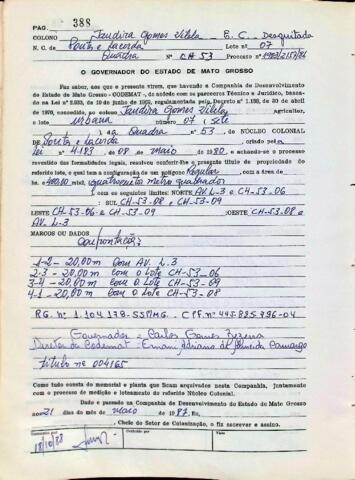 PAG. 388
COLONO Jandira Gomes Vilela E. C. Desquitada
N. C. de Pontes e Lacerda Lote nº 07
Quadra CH 53 Processo Nº
O GOVERNADOR DO ESTADO DE MATO GROSSO
Faz saber, aos que a presente virem, que havendo a Companhia de Desenvolvimento
do Estado de Mato Grosso - CODEMAT -, de acordo com os pareceres Técnico e Jurídico, basea-
do na Lei nº 3.933, de 19 de junho de 1962, regulamentada pelo Decreto nº 1.138, de 30 de abril
de 1970, concedido ao colono Jandira Gomes Vilela agricultor,
o lote urbana número 07 ( Sete
) da Quadra nº 53, DE NÚCLEO COLONIAL
de Pontes e Lacerda, criado pela
Lei nº 4.183, de 08 de maio de 1980, e achando-se o processo
revestido das formalidades legais, resolveu conferir-lhe o presente título de propriedade do
referido lote, o qual tem a configuração de um polígono Regular, com a área de
hs. 400,00 mts2. (quatrocentos metros quadrados
), com os seguintes limites: NORTE AV. L-3 e CH-53-06
; SUL CH-53-08 e CH-53-09
LESTE CH-53-06 e CH-53-09 ;OESTE CH-53-08 e
AV. L-3
MARCOS OU DADOS
Confrontações
1-2 - 20,00m Com AV. L-3
2-3 - 20,00m Com o Lote CH-53_06
3-4 - 20,00m Com o Lote CH-53-09
4-1 - 20,00m Com o Lote CH-53-08
RG. nº 1.104.138-SSPMG. C.P.F. nº 495.825.796-04
Governador - Carlos Gomes Bezerra
Diretor da Codemat - Ernani Adriano de Almeida Camargo
Título nº 004165
Tudo consta do memorial e planta que ficam arquivados nesta Companhia, juntamente
com o processo de medição e loteamento do referido Núcleo Colonial.
Dado e passado na Companhia de Desenvolvimento do Estado de Mato Grosso
aos 21 dias do mês de maio de 1987. Eu,
, Chefe do Setor de Colonização, o fiz escrever e assino.
Conferido por
18/10/88